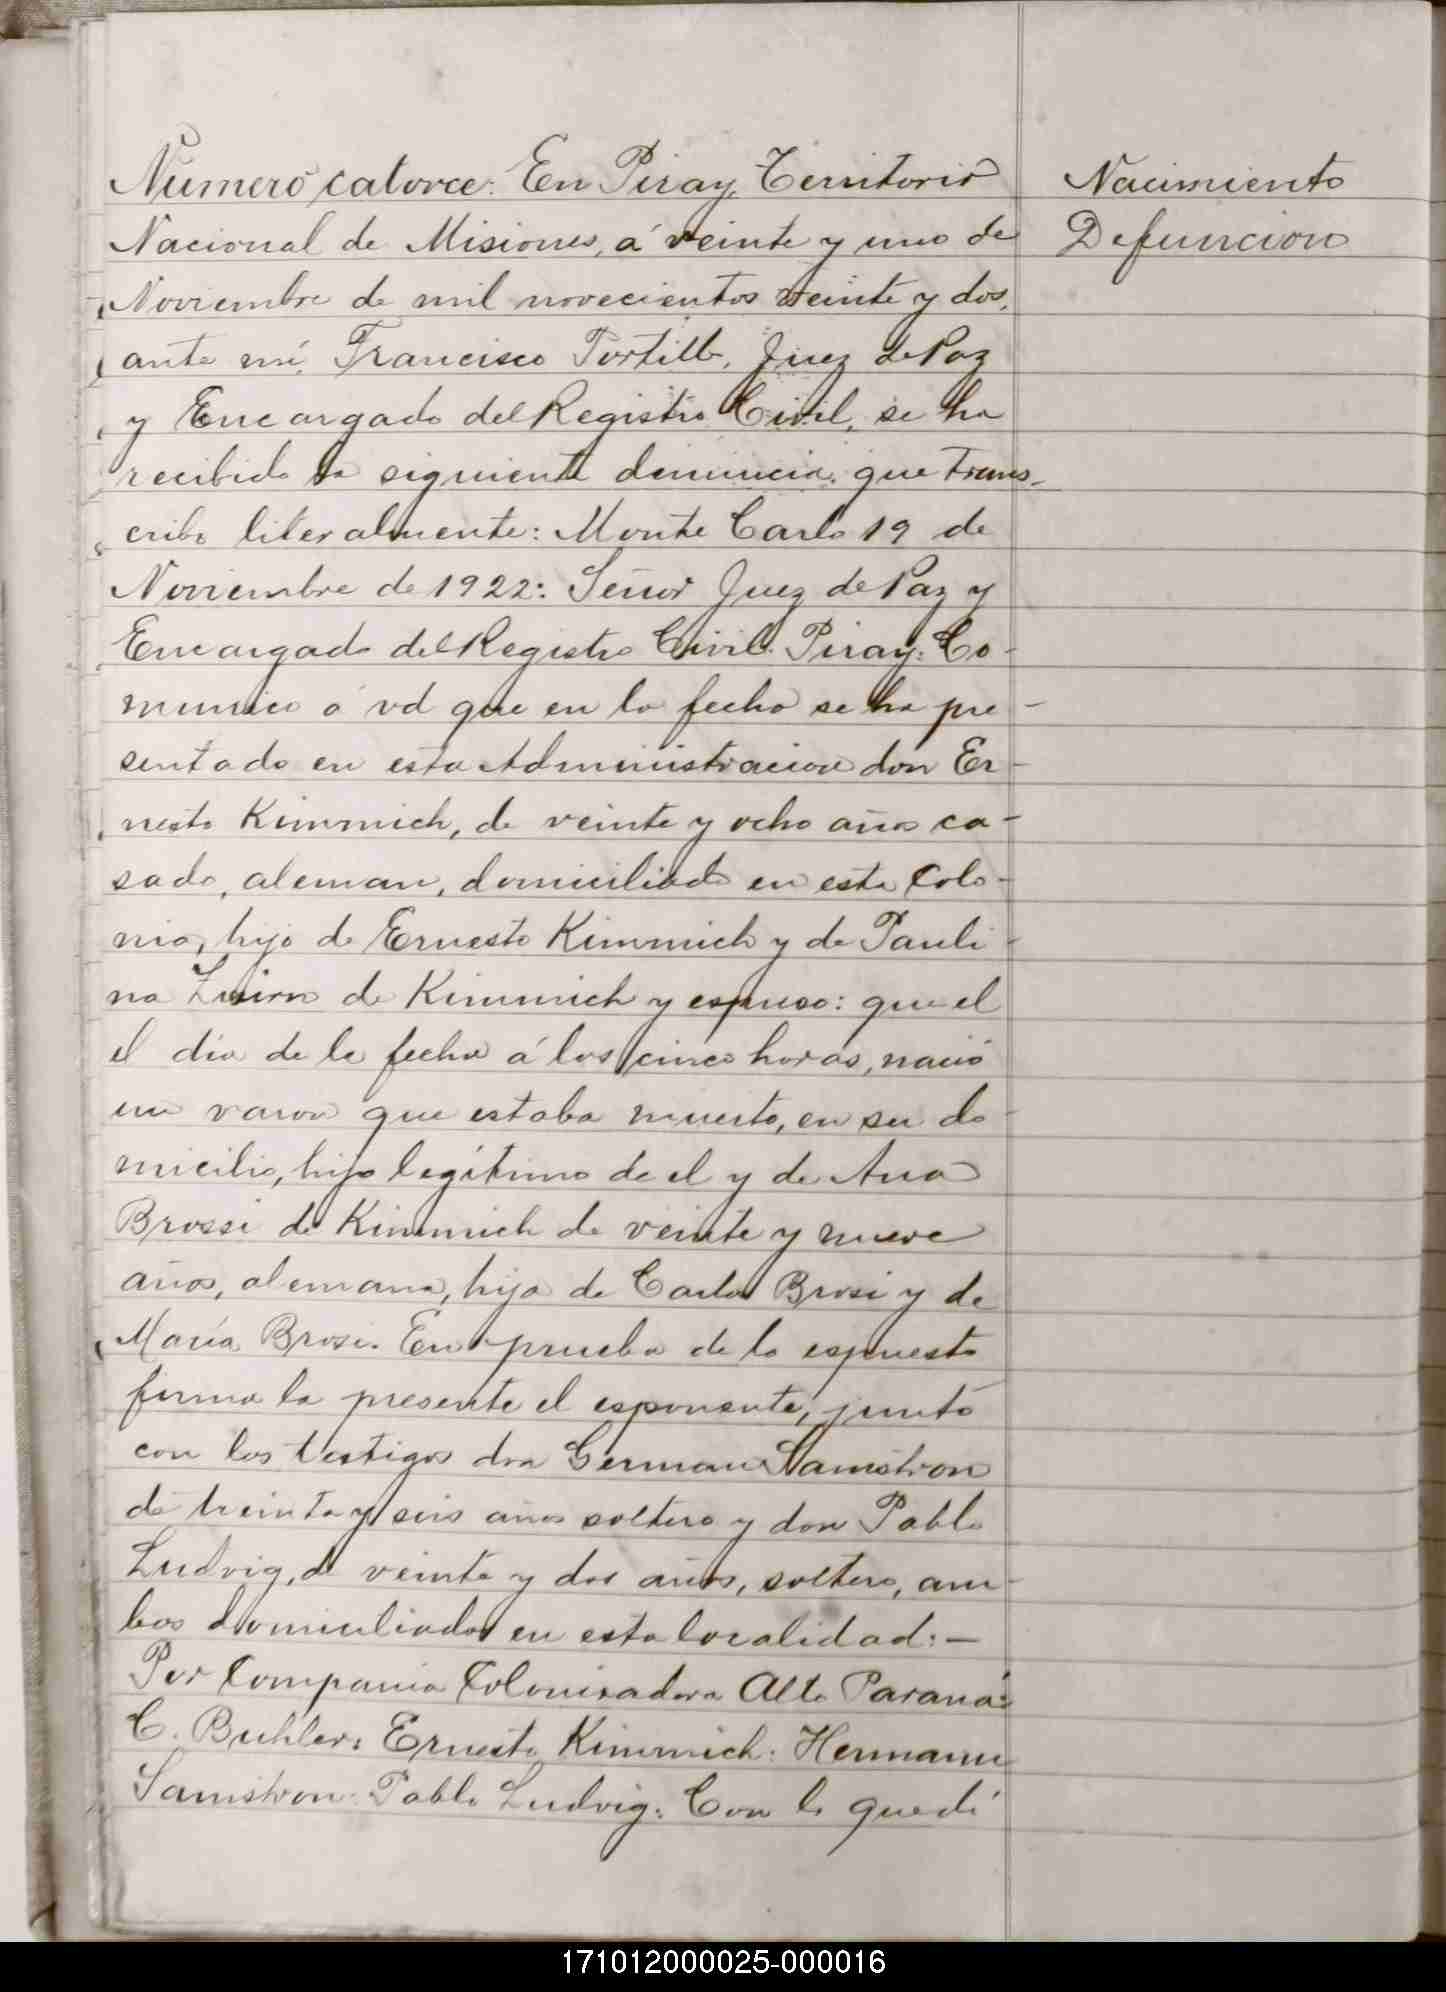 Número catorce: En Piray, Territorio
Nacional de Misiones, á veinte y uno de
Noviembre de mil novecientos veinte y dos,
ante mí, Francisco Portillo, Juez de Paz
y Encargado del Registro Civil, se ha
recibido la siguiente denuncia que trans-
cribo literalmente: Monte Carlo 19 de
Noviembre de 1922: Señor Juez de Paz y
Encargado del Registro Civil. Piray: Co-
munico á vd que en la fecha se ha pre-
sentado en esta Administracion don Er-
nesto Kimmich, de veinte y ocho años ca-
sado, aleman, domiciliado en esta Colo-
nia, hijo de Ernesto Kimmich y de Pauli-
na de Kimmich y espuso: que el
el día de la fecha á las cinco horas, nació
un varon que estaba muerto, en su do-
micilio, hijo legítimo de el y de Ana
Brossi de Kimmich de veinte y nueve
años, alemana, hija de Carlos Brosi y de
María Brosi. En prueba de lo espuesto
firma la presente el esponente, junto
con los testigos don German Samstron
de treinta y seis años soltero y don Pablo
Ludvig, de veinte y dos años, soltero, am-
bos domiciliados en esta localidad: —
Por Compania Colonisadora Alto Paraná:
C. Buhler: Ernesto Kimmich: Hermann
Samstron: Pablo Ludvig: Con lo quedó
Nacimiento
Defuncion
171012000025-000016